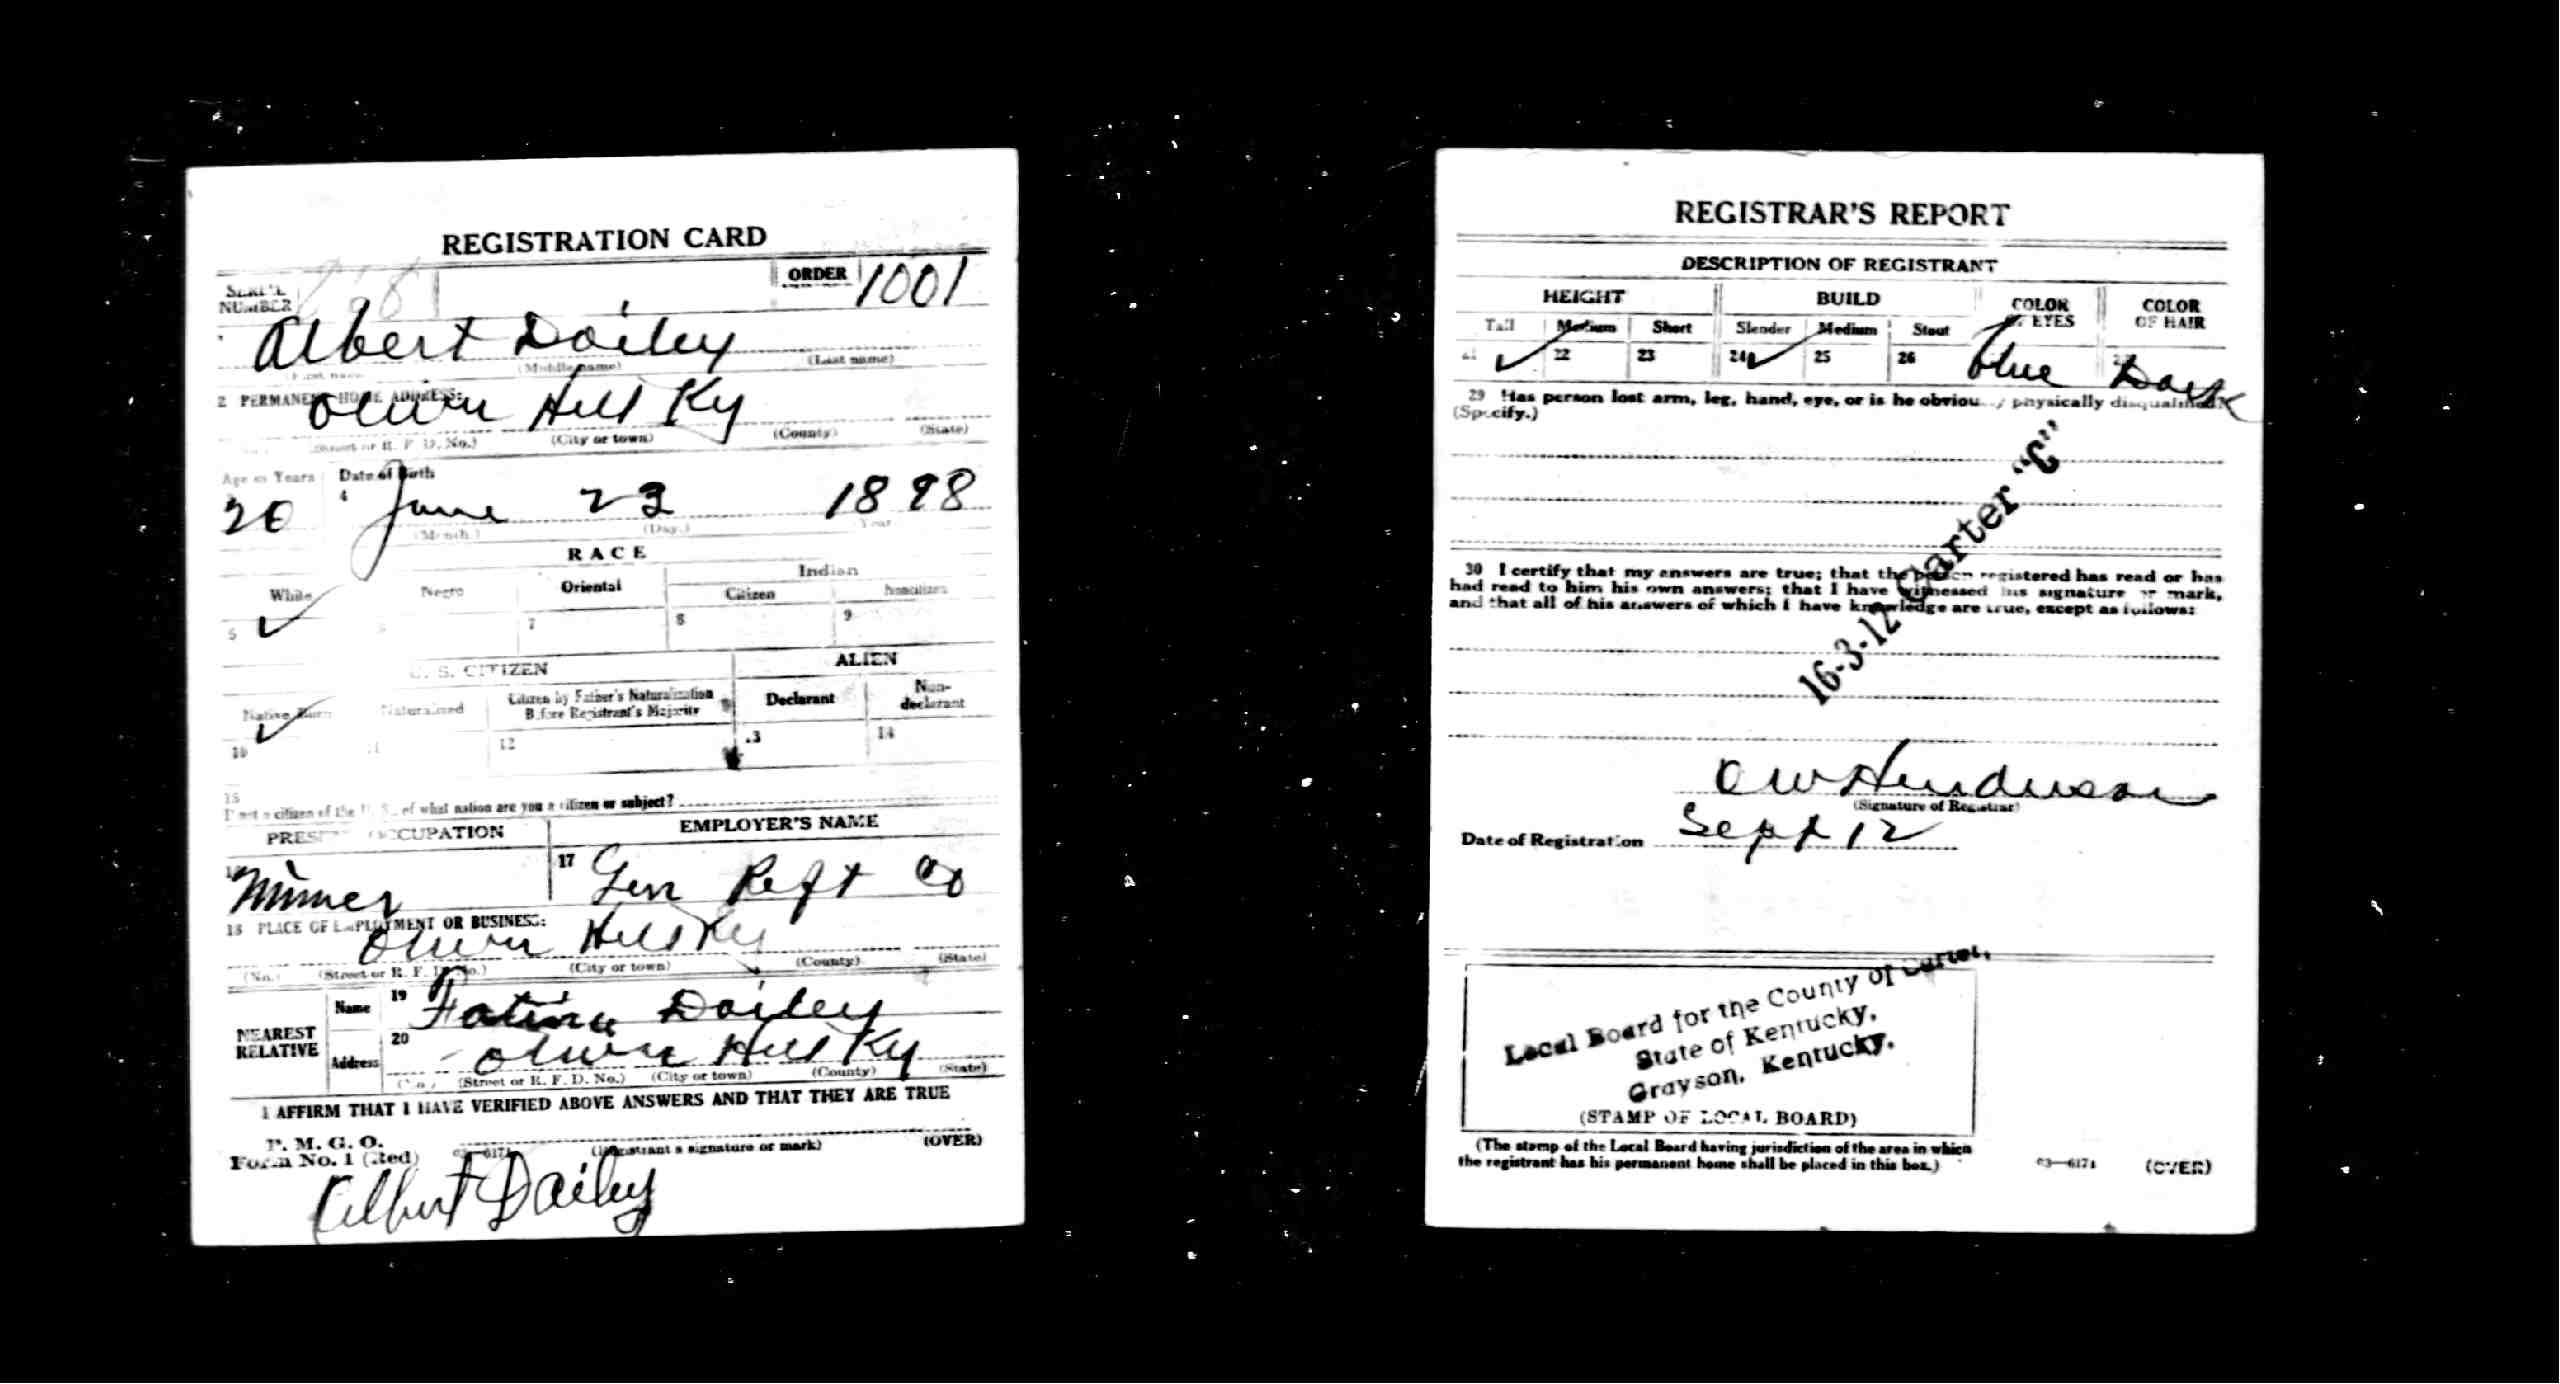 REGISTRATION CARD
SERIAL NUMBER
ORDER 1001
Albert Dailey
(Middle name) (Last name)
2 PERMANENT HOME ADDRESS:
Olive Hill Ky
(Street or R. F. D. No.) (City or town) (County) (State)
Age in Years Date of Birth
20 4 June 23 1898
(Month.) (Day.) Year
RACE
White Negro Oriental Indian
Citizen Noncitizen
5 7 8 9
U. S. CITIZEN ALIEN
Native Born Naturalized Citizen by Father's Naturalization Before Registrant's Majority Declarant Non-declarant
10 12 13 14
15
If not a citizen of the U. S., of what nation are you a citizen or subject?
PRESENT OCCUPATION EMPLOYER'S NAME
Miner 17 Gen Reft Co
18 PLACE OF EMPLOYMENT OR BUSINESS:
Olive Hill Ky
(No.) (Street or R. F. D. No.) (City or town) (County) (State)
NEAREST RELATIVE
Name 19 Dailey
Address 20 Olive Hill Ky
(No.) (Street or R. F. D. No.) (City or town) (County) (State)
I AFFIRM THAT I HAVE VERIFIED ABOVE ANSWERS AND THAT THEY ARE TRUE
P. M. G. O.
Form No. 1 (Red) 03—6171 (Registrant's signature or mark) (OVER)
Albert Dailey
REGISTRAR'S REPORT
DESCRIPTION OF REGISTRANT
HEIGHT BUILD COLOR OF EYES COLOR OF HAIR
Tall Medium Short Slender Medium Stout
21 22 23 24 25 26 blue Dark
29 Has person lost arm, leg, hand, eye, or is he obviously physically disqualified?
(Specify.)
30 I certify that my answers are true; that the person registered has read or has
had read to him his own answers; that I have witnessed his signature or mark,
and that all of his answers of which I have knowledge are true, except as follows:
16-3-12 Carter "C"
O W Henderson
(Signature of Registrar)
Date of Registration Sept 12
Local Board for the County of Carter,
State of Kentucky,
Grayson, Kentucky.
(STAMP OF LOCAL BOARD)
(The stamp of the Local Board having jurisdiction of the area in which
the registrant has his permanent home shall be placed in this box.)
03—6171 (OVER)